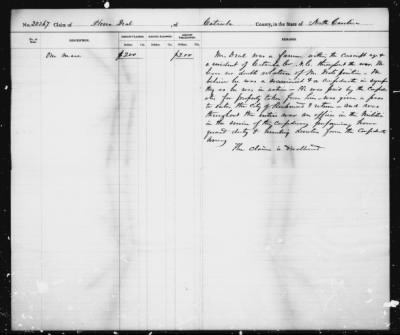 No. 20267 Claim of Deal of Catawba County, in the State of North Carolina
No. of Item. DESCRIPTION. AMOUNT CLAIMED. AMOUNT ALLOWED. AMOUNT DISALLOWED. REMARKS.
Dollars. Cts. Dollars. Cts. Dollars. Cts.
One Mare $200 $200 Mr. Deal was a farmer within the Conscript age &
a resident of Catawba Co. N.C. throughout the war. We
have no doubt of Mr. Deal's position. We
believe he was a secessionist & a Confederate in sympa-
thy as he was in action. He was paid by the Confed-
for property taken from him, was given a pass
to enter the City of Richmond & return and was
throughout the entire war an officer in the Militia
in the service of the Confederacy performing home
guard duty & hunting deserters from the Confederate
Army
The claim is disallowed